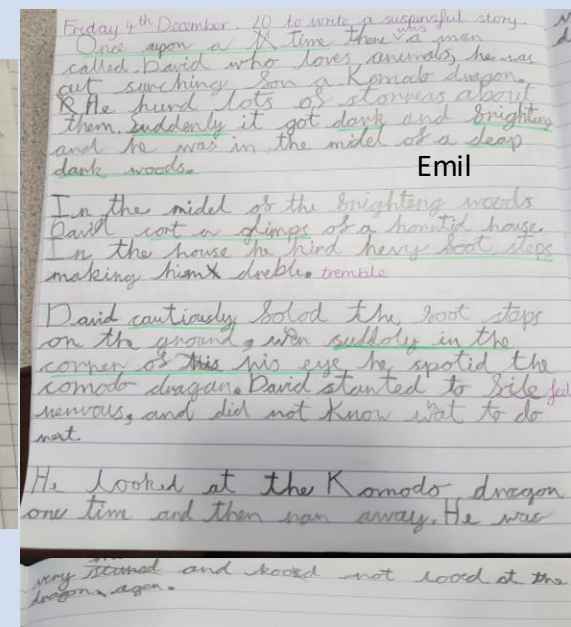 Friday 4th December. LO to write a suspensful story.
Once apon a time there was a man
called David who loves animals, he was
out surching for a Komodo dragon.
He hurd lots of storreas about
them. Suddenly it got dark and frighting
and he was in the midel of a deap
dark woods.
Emil
In the midel of the frighting woods
David cort a glimps of a hountid house.
In the house he hird hevy foot steps
making him dreble. tremble
David cautiously folod the foot steps
on the ground, wen suddoly in the
corner of his eye he spotid the
comodo dragan. David started to file feel
nervous, and did not know wat to do
next.
He looked at the Komodo dragon
one tim and then ran away. He was
very and not at the
dragon agen.